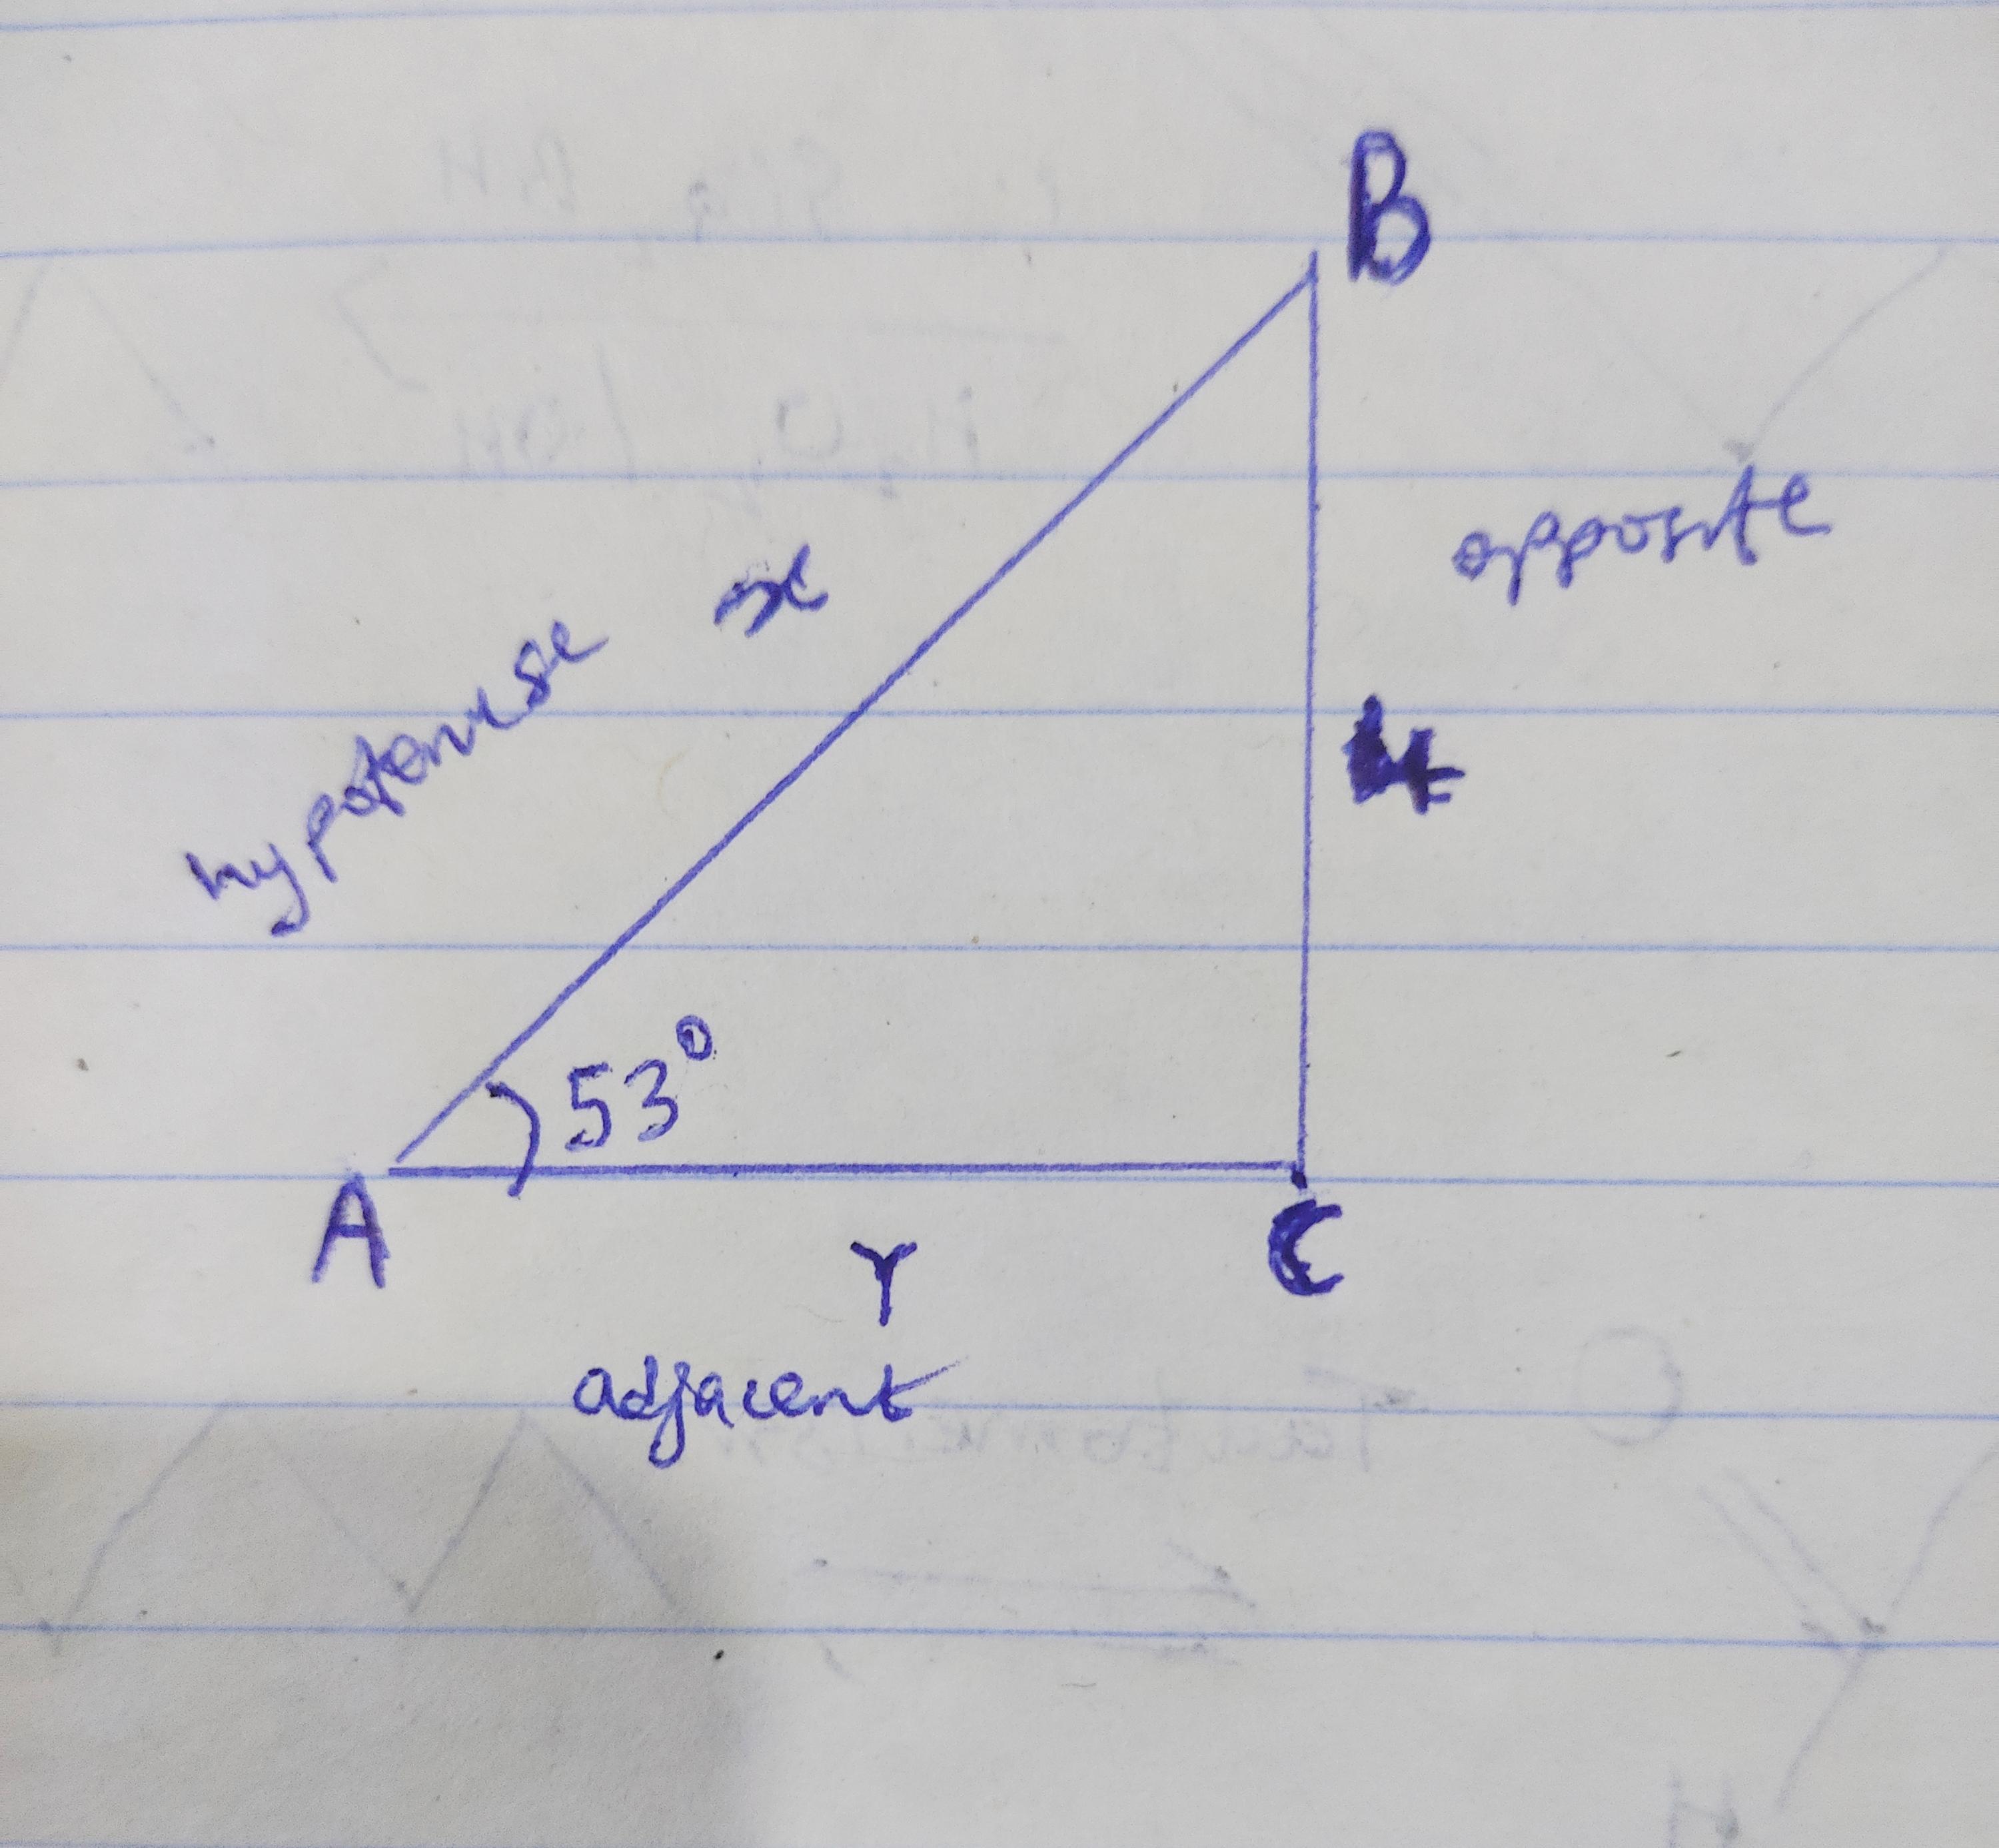 B
opposite
hypotenuse x
4
53°
A
C
Y
adjacent